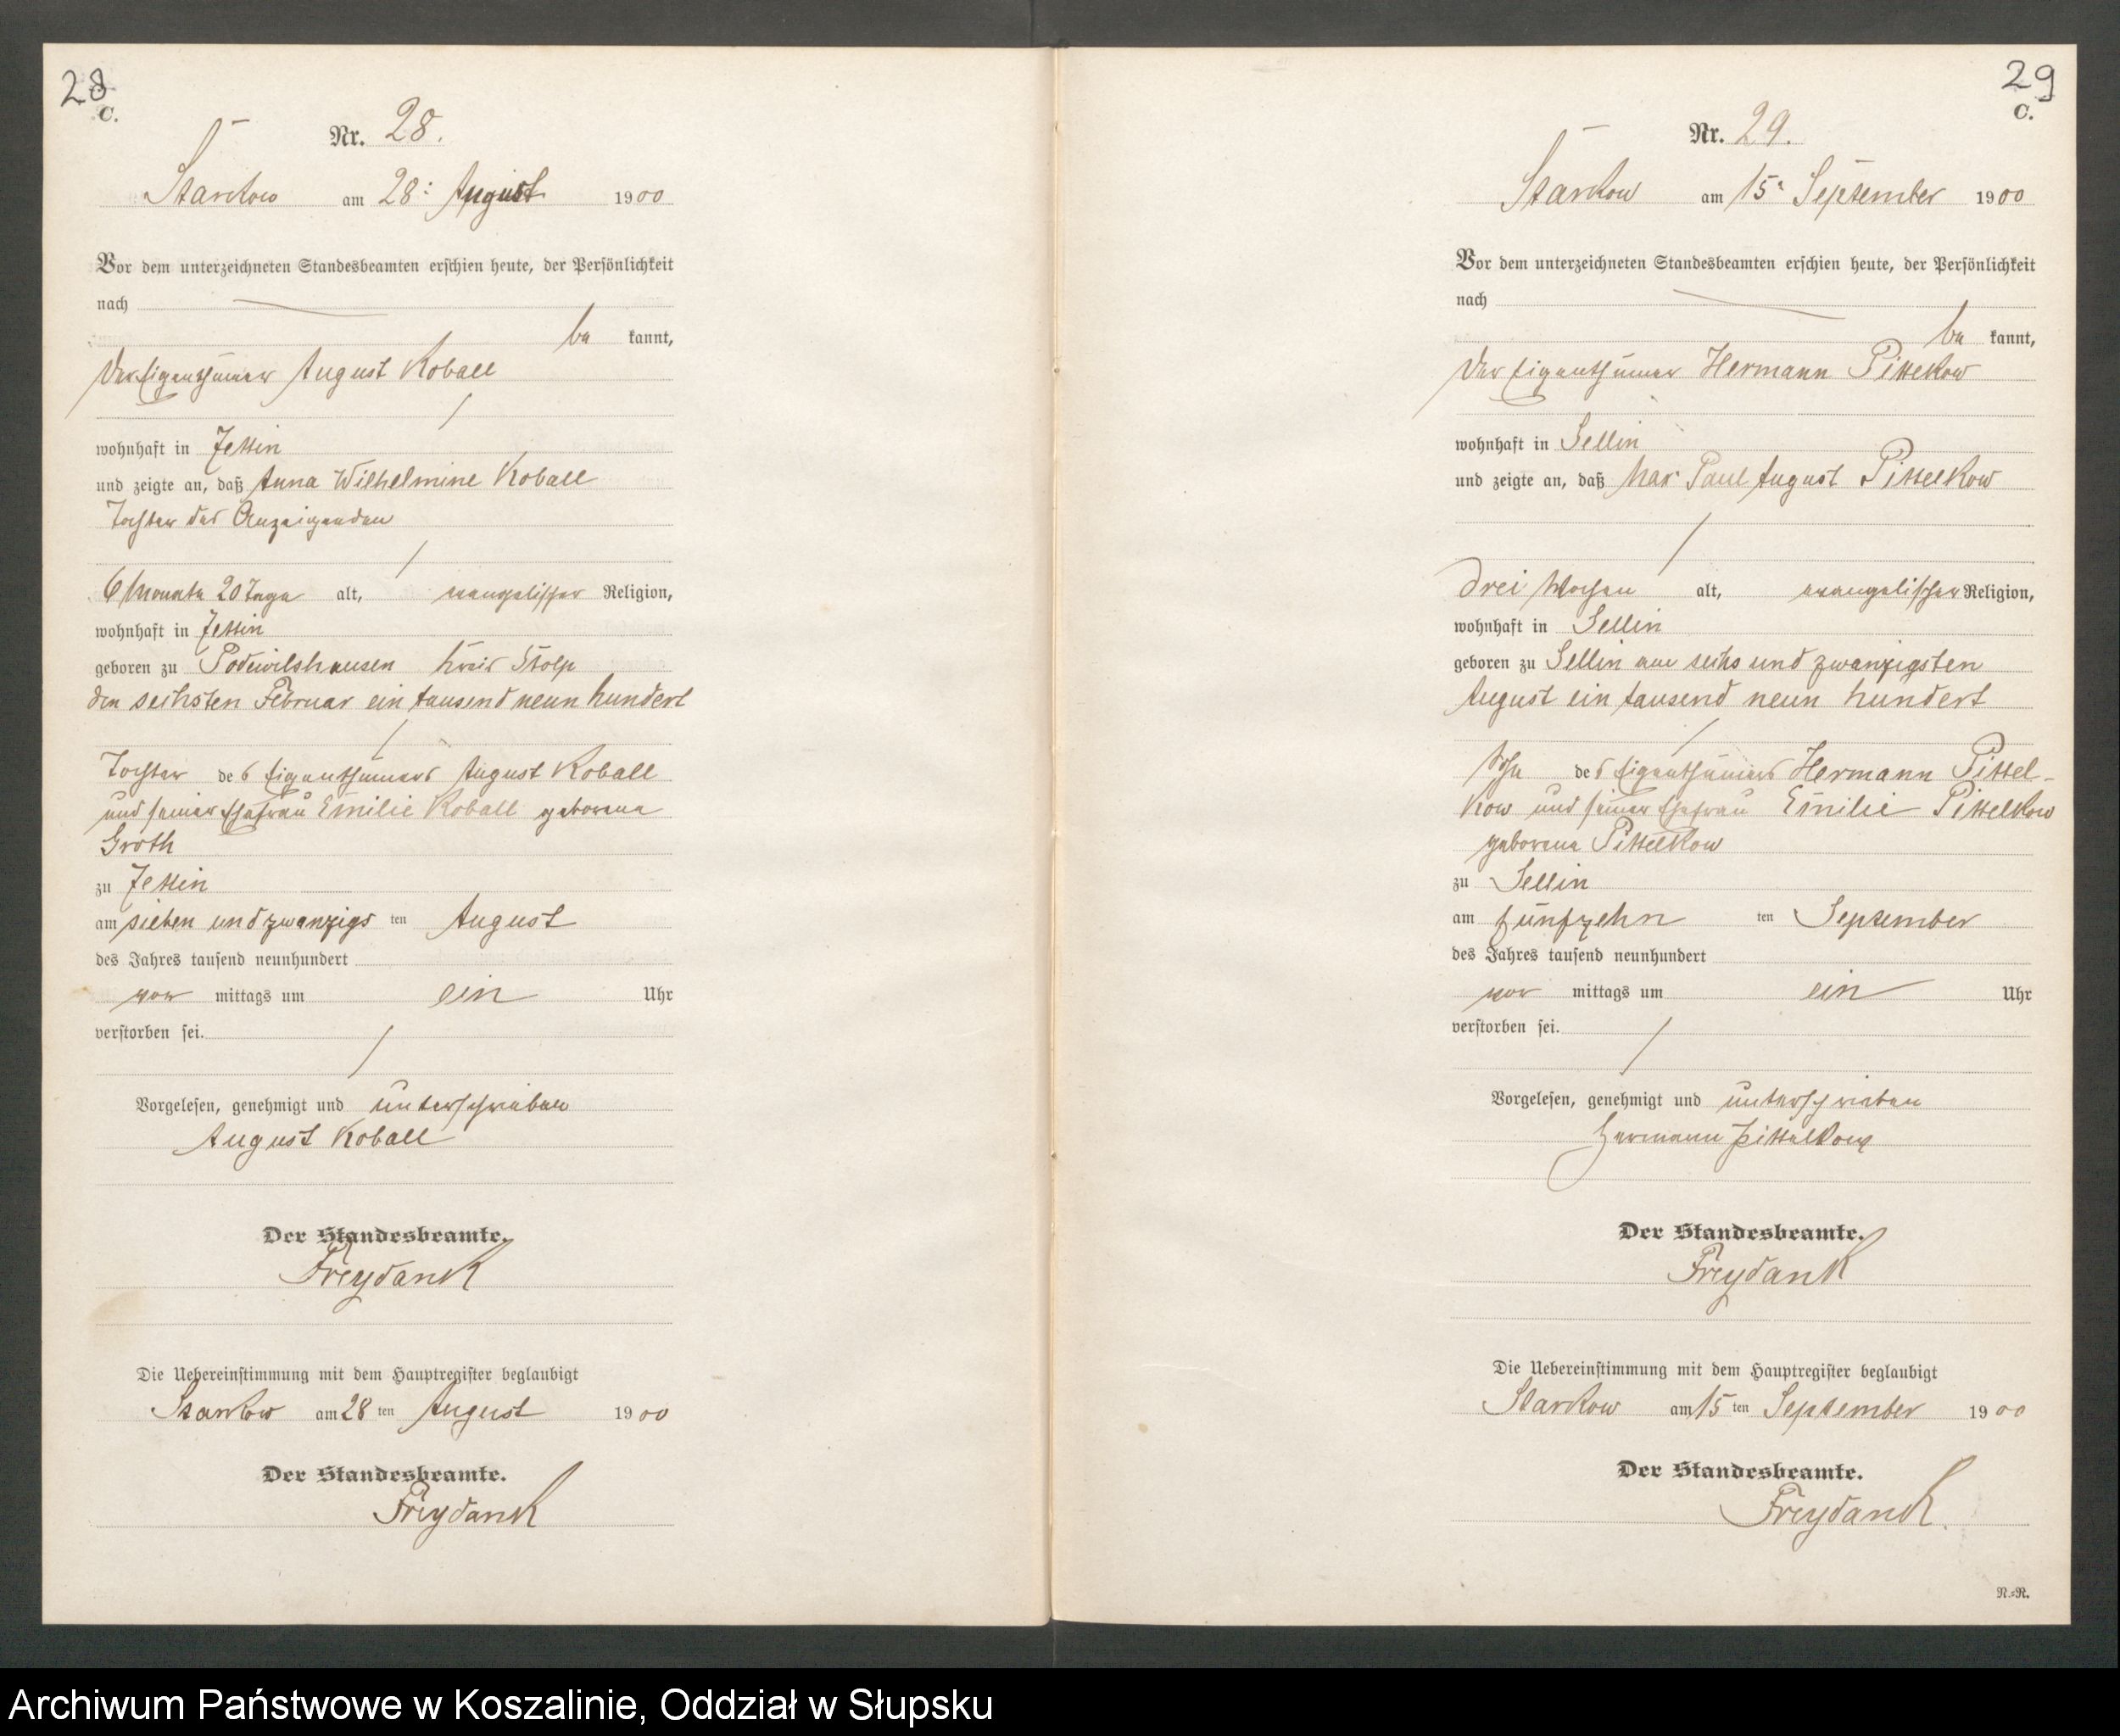 28
C.
Nr. 28.
Starkow am 28. August 1900
Vor dem unterzeichneten Standesbeamten erschien heute, der Persönlichkeit
nach
be kannt,
der Eigenthümer August Koball
wohnhaft in Jessin
und zeigte an, daß Anna Wilhelmine Koball
Tochter des Anzeigenden
6 Monate 20 Tage alt, evangelischer Religion,
wohnhaft in Jessin
geboren zu Podewilshausen Kreis Stolp
den sechsten Februar ein tausend neun hundert
Tochter des Eigenthümers August Koball
und seiner Ehefrau Emilie Koball geborene
Groth
zu Jessin
am sieben und zwanzigs ten August
des Jahres tausend neunhundert
vor mittags um ein Uhr
verstorben sei.
Vorgelesen, genehmigt und unterschrieben
August Koball
Der Standesbeamte.
Freydank
Die Uebereinstimmung mit dem Hauptregister beglaubigt
Starkow am 28 ten August 1900
Der Standesbeamte.
Freydank
29
C.
Nr. 29.
Starkow am 15. September 1900
Vor dem unterzeichneten Standesbeamten erschien heute, der Persönlichkeit
nach
be kannt,
der Eigenthümer Hermann Pittelkow
wohnhaft in Sellin
und zeigte an, daß Max Paul August Pittelkow
drei Wochen alt, evangelischer Religion,
wohnhaft in Sellin
geboren zu Sellin am sechs und zwanzigsten
August ein tausend neun hundert
Sohn des Eigenthümers Hermann Pittel-
kow und seiner Ehefrau Emilie Pittelkow
geborene Pittelkow
zu Sellin
am fünfzehn ten September
des Jahres tausend neunhundert
vor mittags um ein Uhr
verstorben sei.
Vorgelesen, genehmigt und unterschrieben
Hermann Pittelkow
Der Standesbeamte.
Freydank
Die Uebereinstimmung mit dem Hauptregister beglaubigt
Starkow am 15 ten September 1900
Der Standesbeamte.
Freydank.
N.=R.
Archiwum Państwowe w Koszalinie, Oddział w Słupsku